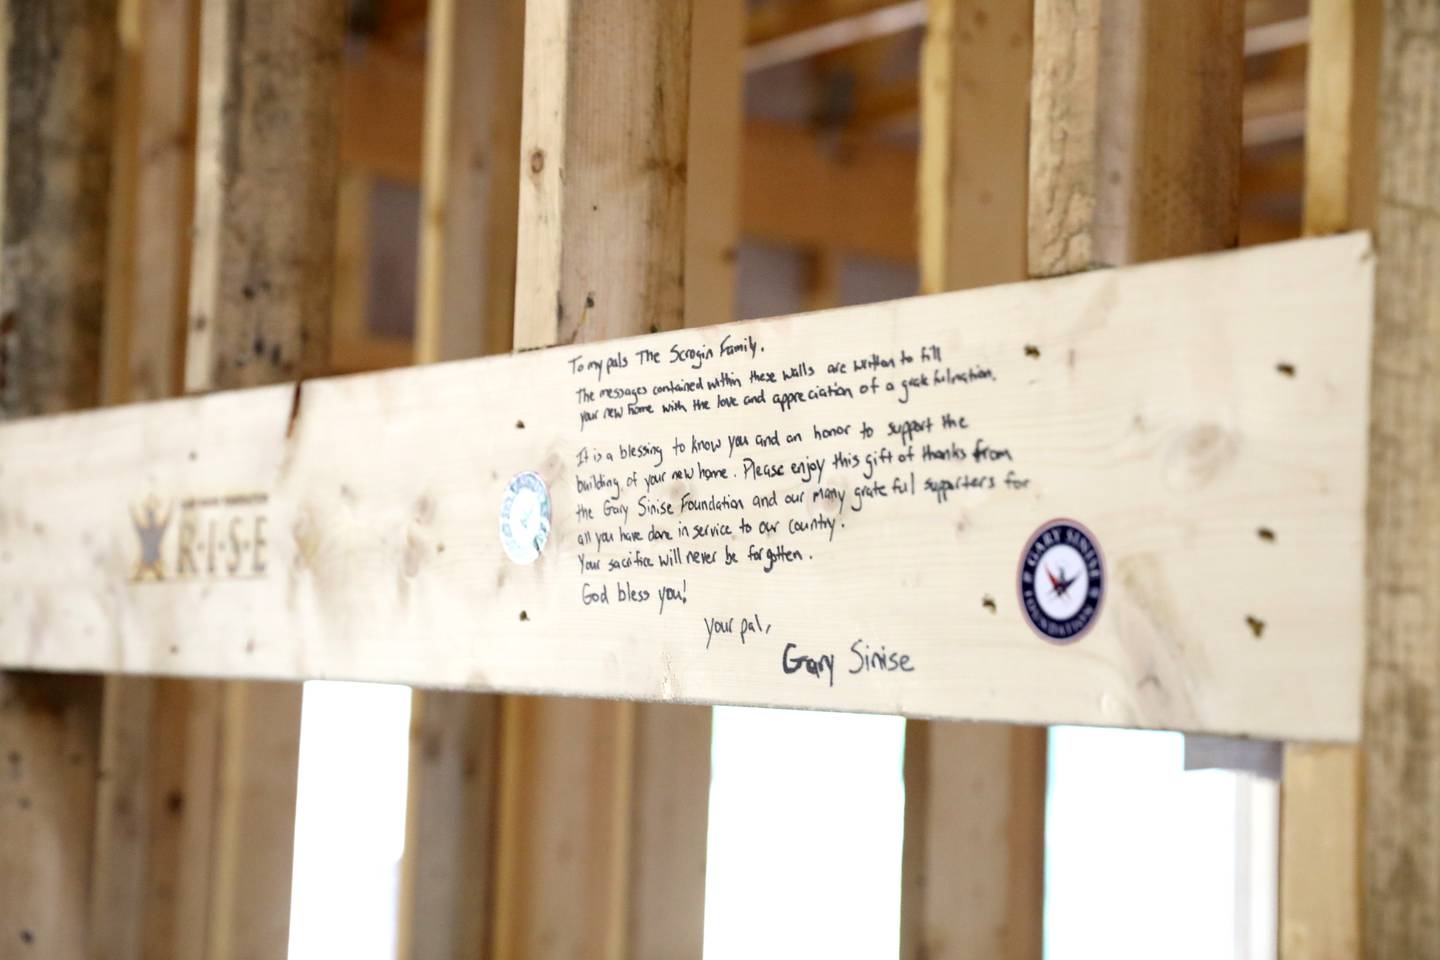 To my pals The Scrogin Family.
The messages contained within these walls are written to fill
your new home with the love and appreciation of a grateful nation.
It is a blessing to know you and an honor to support the
building of your new home. Please enjoy this gift of thanks from
the Gary Sinise Foundation and our many grateful supporters for
all you have done in service to our country.
Your sacrifice will never be forgotten.
God bless you!
Your pal,
Gary Sinise
R·I·S·E
GARY SINISE
FOUNDATION